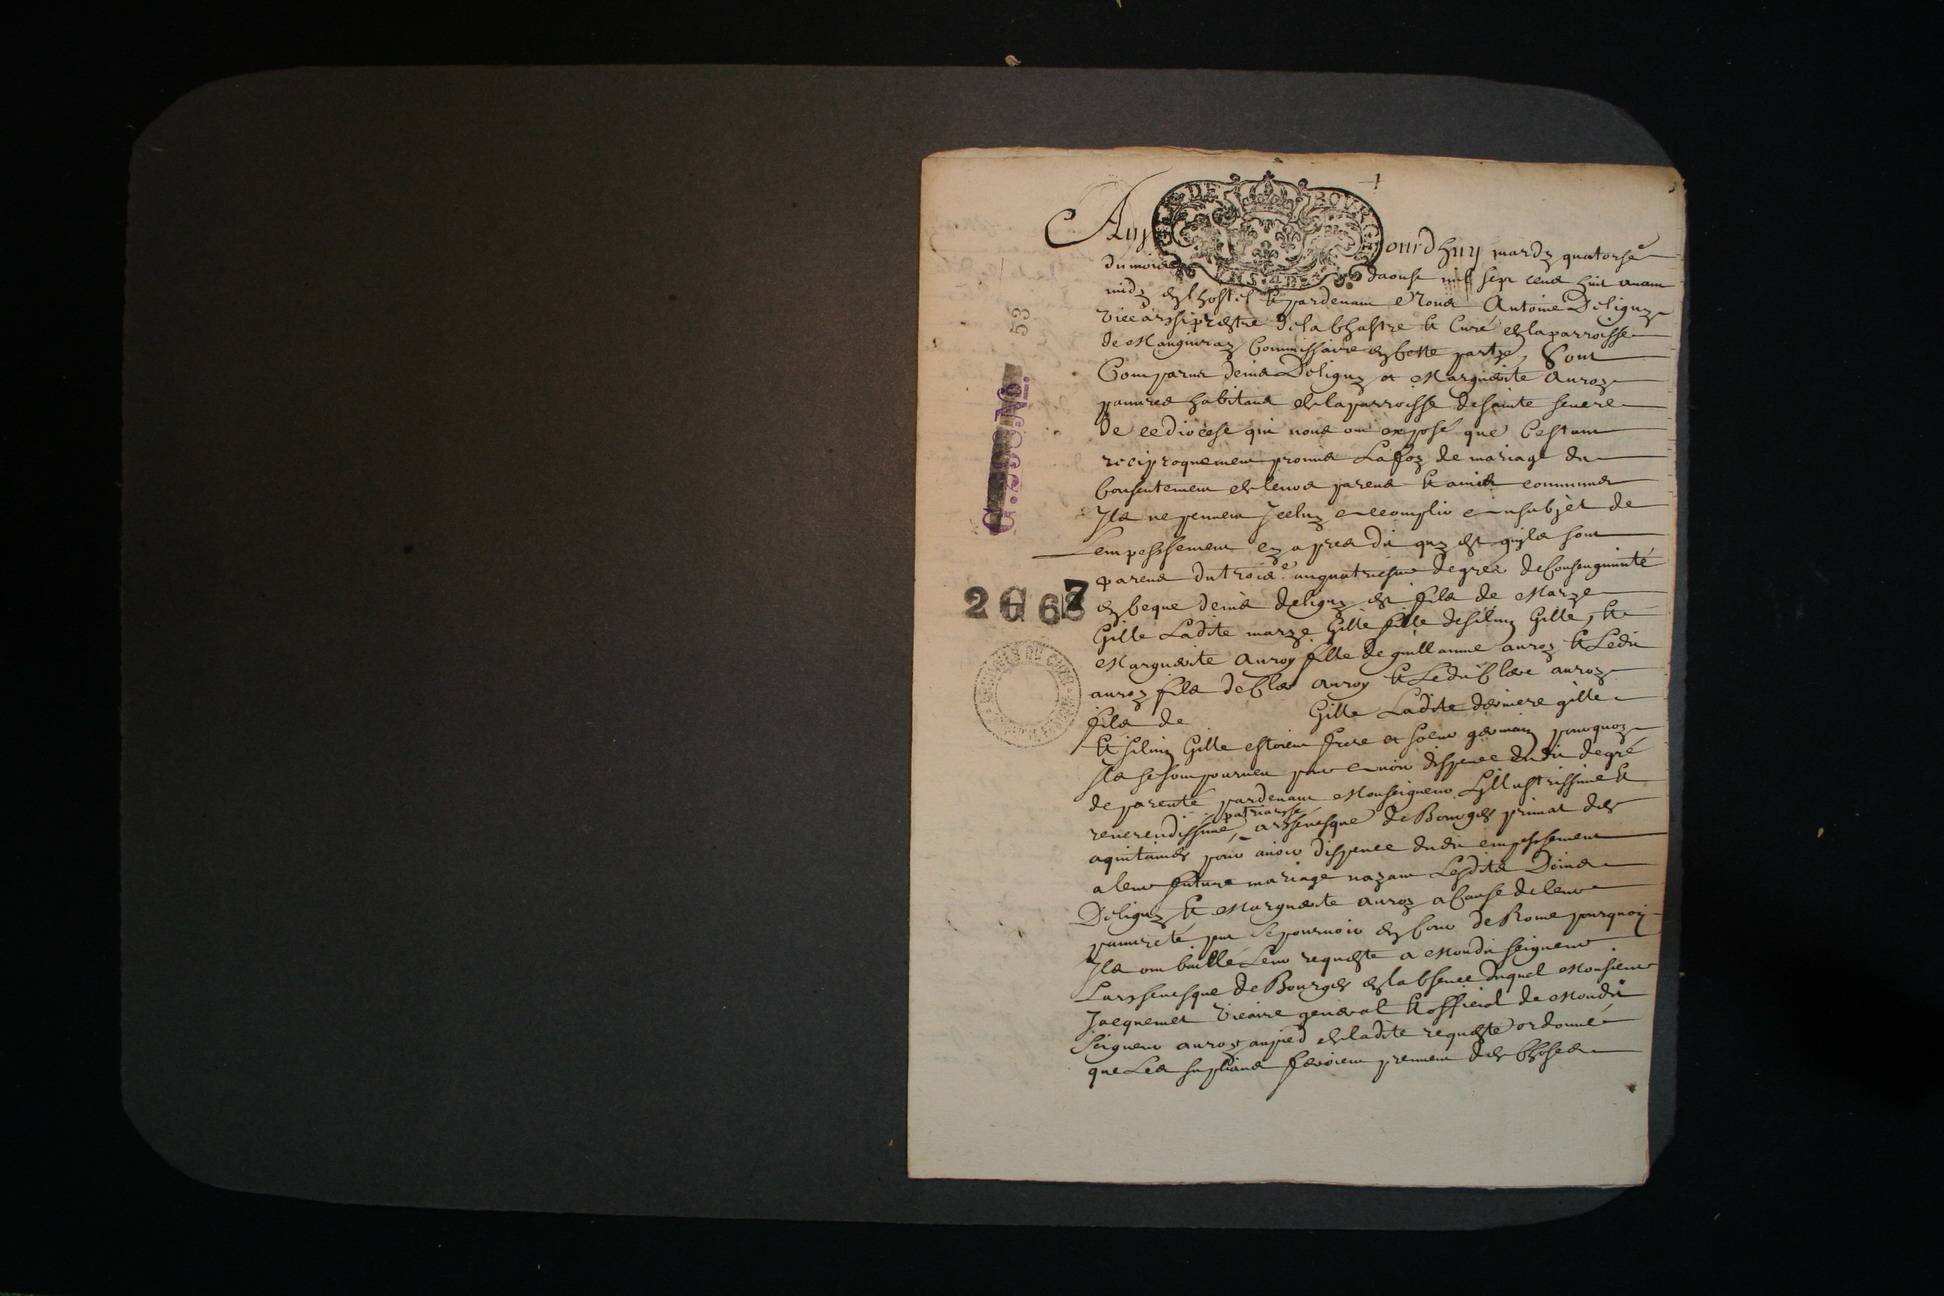 GLE. DE BOURGES
Aujourdhuy mardy quatorse
du mois daoust mil sept cens huit avant
midy en lhostel et pardevant Nous Antoine Deligny
vicearsiprestre de la Chastre et Curé de la parroisse
de Commissaire en cette partye, Sont
Comparus Denis Deligny et Marguerite auroy
pauvres habitans de la parroisse de sainte severe
de ce diocese qui nous ont exposé que cestant
reciproquement promis La foy de mariage du
consentement de leurs parens et amis communs
Ils ne peuvent Iceluy accomplir a subjet de
Lempeschement cy apres dit quy est quyls sont
parens du trois.e au quatriesme degrés de Consanguinité
en ce que denis deligny est fils de Marye
Gille Ladite marye Gille fille de silvin Gille, et
Marguerite auroy fille de guillaume auroy et Ledit
auroy fils de Clair auroy et Ledit Clair auroy
fils de Gille Ladite derniere gille
et silvin Gille estoient frere et soeur germain pourquoy
Ils se sont pourveu pour avoir dispence dudit degré
de parenté pardevant Monseigneur Lillustrissime et
reverendissime, patriarsse arssevesque de Bourges primat des
aquitaines pour avoir dispence dudit empeschement
a leur future mariage nayant Lesdits Denis
Deligny et Marguerite auroy a cause de leur
pauvreté peu se pourvoir en cour de Rome pourquoy
Ils ont baillé Leur requeste a Mondit seigneur
Larssevesque de Bourges en labsence duquel Monsieur
Jacquemet vicaire general et official de Mondit
seigneur auroit au pied de ladite requeste ordonné
que Les supliants feroient preuvent des choses
53
2 G 67
ARCHIVES DU CHER